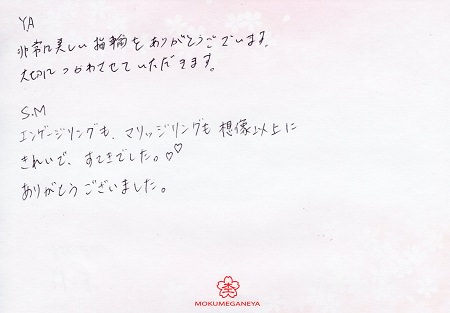 YA
非常に美しい指輪をありがとうございます。
大切につかわせていただきます。
S.M
エンゲージリングも、マリッジリングも想像以上に
きれいで、すてきでした。♡♡
ありがとうございました。
MOKUMEGANEYA